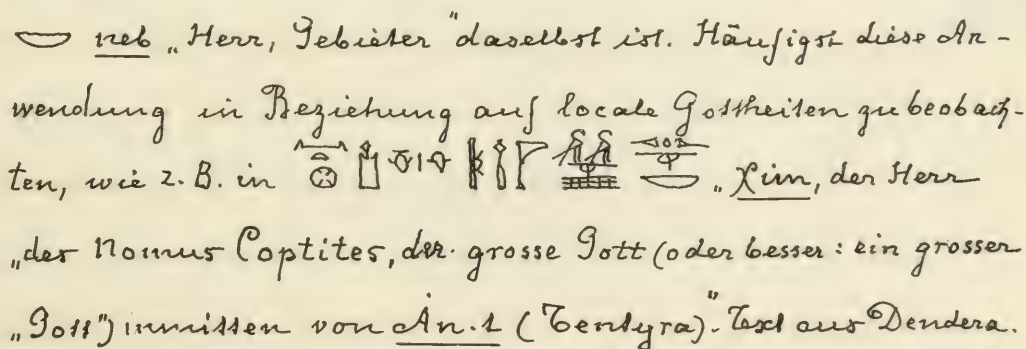 neb „Herr, Gebieter" daselbst ist. Häufigst diese An-
wendung in Beziehung auf locale Gottheiten zu beobach-
ten, wie z. B. in „Χim, der Herr
„des Nomus Coptites, der grosse Gott (oder besser: ein grosser
„Gott") inmitten von Ȧn.t (Tentyra)." Text aus Dendera.